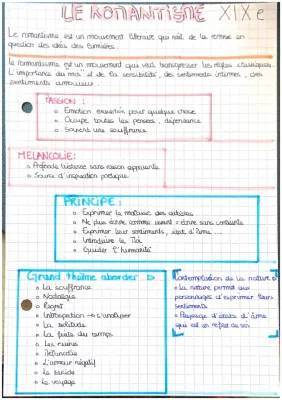 LE ROMANTISME XIXe
Le romantisme est un mouvement littéraire qui naît de la remise en
question des idées des Lumières.
Le romantisme est un mouvement qui veut transgresser les règles classiques.
L'importance du moi et de la sensibilité, des sentiments intenses, des
sentiments amoureux.
PASSION :
Emotion excessive pour quelque chose
Occupe toutes les pensées, dépendance
Souvent une souffrance
MELANCOLIE:
Profonde tristesse sans raison apparente
Source d'inspiration poétique
PRINCIPE :
Exprimer le malaise des artistes
Ne plus écrire comme avant → écrire sans contrainte
Exprimer leur sentiments, état d'âme ...
Introduire le Moi
Guider l'humanité
Grand thème aborder
La souffrance
Nostalgie
Regret
Introspection → s'analyser
La solitude
La fuite du temps
Les ruines
Mélancolie
L'amour négatif
Le suicide
Le voyage
Contemplation de la nature
La nature permet aux
personnages d'exprimer leurs
sentiments
Paysage d'états d'âme
qui est un reflet de soi